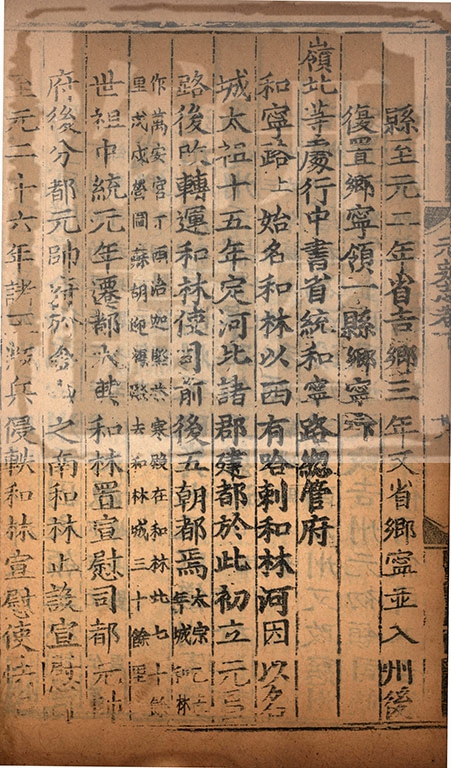 縣至元二年省吉鄉三年又省鄉寧並入州後
復置鄉寧領一縣鄉寧
嶺北等處行中書省統和寧路總管府
和寧路上始名和林以西有哈剌和林河因以名
城太祖十五年定河北諸郡建都於此初立元昌
路後改轉運和林使司前後五朝都焉太宗
年城和林
作萬安宮丁酉治迦堅茶寒殿在和林北七十餘
里戊戌營圖蘇胡迎駕殿去和林城三十餘里
世祖中統元年遷都大興和林置宣慰司都元帥
府後分都元帥府於金山之南和林止設宣慰司
至元二十六年諸王叛兵侵軼和林宣慰使怯